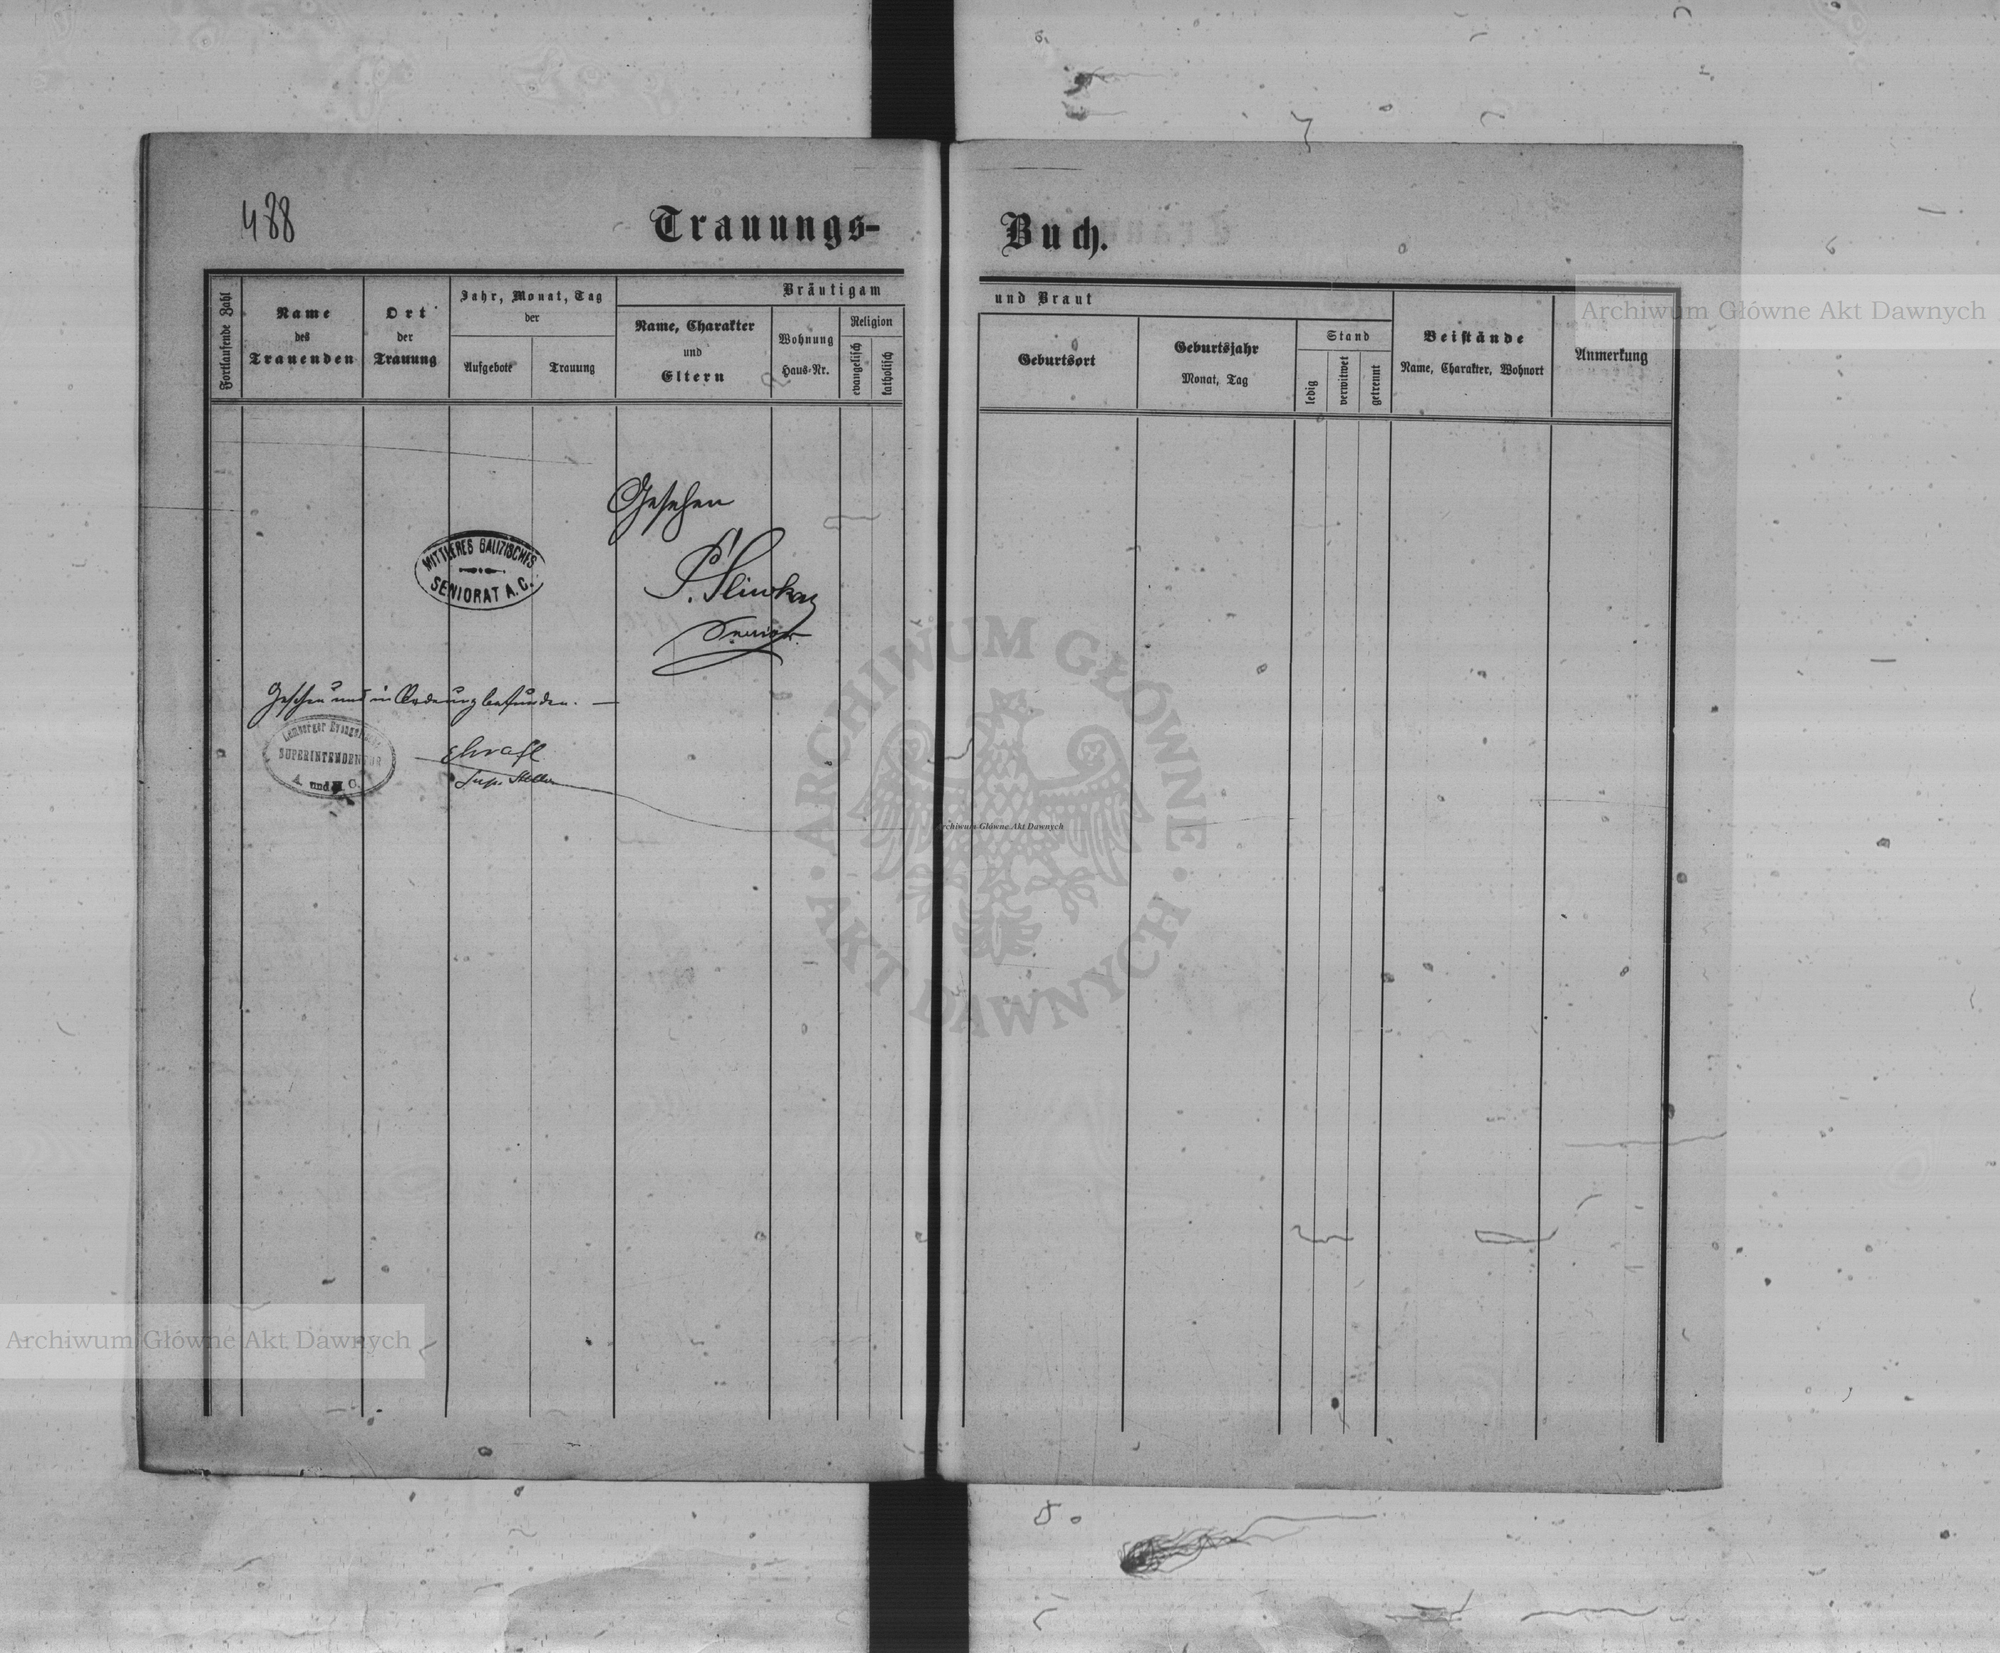 488
Trauungs-Buch.
Fortlaufende Zahl
Name
des
Trauenden
Ort
der
Trauung
Jahr, Monat, Tag
der
Aufgebote
Trauung
Bräutigam
Name, Charakter
und
Eltern
Wohnung
Haus-Nr.
Religion
evangelisch
katholisch
und Braut
Geburtsort
Geburtsjahr
Monat, Tag
Stand
ledig
verwitwet
getrennt
Beistände
Name, Charakter, Wohnort
Anmerkung
Gesehen
MITTLERES GALIZISCHES
SENIORAT A. C.
Senior
Gesehen und in Ordnung befunden. —
Lemberger
SUPERINTENDENTUR
A. und H. C.
Archiwum Główne Akt Dawnych
Archiwum Główne Akt Dawnych
Archiwum Główne Akt Dawnych
ARCHIWUM GŁÓWNE · AKT DAWNYCH ·